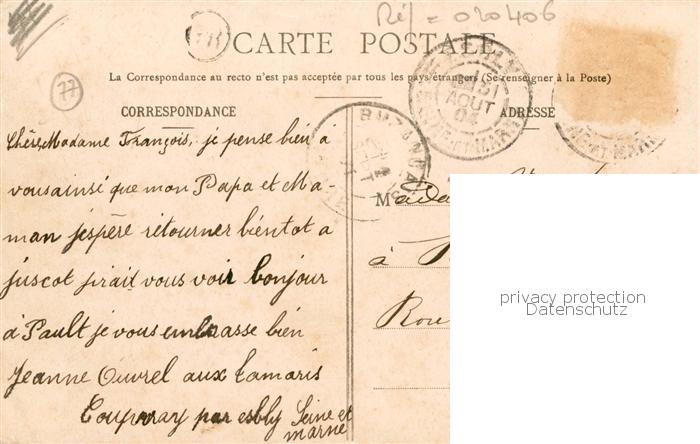 Réf = 020406
77
CARTE POSTALE
La Correspondance au recto n'est pas acceptée par tous les pays étrangers (Se renseigner à la Poste)
CORRESPONDANCE
ADRESSE
31
AOUT
04
ET MARNE
chère Madame François, je pense bien a
vous ainsi que mon Papa et Ma-
man j'espère retourner bientot a
juscot j'irait vous voir bonjour
a Pault je vous embrasse bien
Jeanne Ouvrel aux tamaris
Coupvray par esbly Seine et
marne
à
privacy protection
Datenschutz